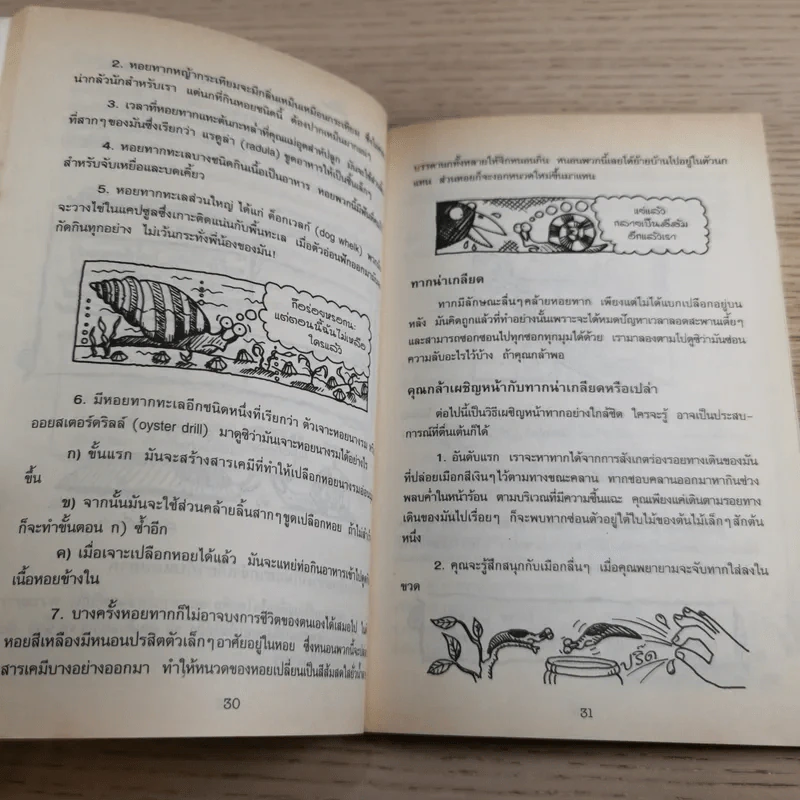 2. หอยทากหญ้ากระเทียมจะมีกลิ่นเหม็นเหมือนกระเทียม
น่ากลัวนักสำหรับเรา แต่นกที่กินหอยชนิดนี้ ต้องปากเหม็น
3. เวลาที่หอยทากแทะต้นกะหล่ำที่คุณแม่อุตส่าห์ปลูก มันจะใช้
ที่สากๆของมันซึ่งเรียกว่า แรดูล่า (radula) ขูดอาหารให้เป็นชิ้นเล็กๆ
4. หอยทากทะเลบางชนิดกินเนื้อเป็นอาหาร หอยพวกนี้มีฟัน
สำหรับจับเหยื่อและบดเคี้ยว
5. หอยทากทะเลส่วนใหญ่ ได้แก่ ด็อกเวลก์ (dog whelk)
จะวางไข่ในแคปซูลซึ่งเกาะติดแน่นกับพื้นทะเล เมื่อตัวอ่อนฟักออกมา
กัดกินทุกอย่าง ไม่เว้นกระทั่งพี่น้องของมัน!
ก็อร่อยหรอกนะ
แต่ตอนนี้ฉันไม่เหลือ
ใครแล้ว
6. มีหอยทากทะเลอีกชนิดหนึ่งที่เรียกว่า ตัวเจาะหอยนางรม
ออยสเตอร์ดริลล์ (oyster drill) มาดูซิว่ามันเจาะหอยนางรมได้อย่างไร
ก) ขั้นแรก มันจะสร้างสารเคมีที่ทำให้เปลือกหอยนางรมอ่อน
ขึ้น
ข) จากนั้นมันจะใช้ส่วนคล้ายลิ้นสากๆขูดเปลือกหอย
ก็จะทำขั้นตอน ก) ซ้ำอีก
ค) เมื่อเจาะเปลือกหอยได้แล้ว มันจะแหย่ท่อกินอาหารเข้าไป
เนื้อหอยข้างใน
7. บางครั้งหอยทากก็ไม่อาจบงการชีวิตของตนเองได้เสมอไป
หอยสีเหลืองมีหนอนปรสิตตัวเล็กๆอาศัยอยู่ในหอย ซึ่งหนอนพวกนี้จะ
สารเคมีบางอย่างออกมา ทำให้หนวดของหอยเปลี่ยนเป็นสีส้มสดใส
30
บรรดานกทั้งหลายให้จิกหนอนกิน หนอนพวกนี้เลยได้ย้ายบ้านไปอยู่ในตัวนก
แทน ส่วนหอยก็จะงอกหนวดใหม่ขึ้นมาแทน
แย่แล้ว
กลายเป็นเหยื่อ
อีกแล้วเรา
ทากน่าเกลียด
ทากมีลักษณะลื่นๆคล้ายหอยทาก เพียงแต่ไม่ได้แบกเปลือกอยู่บน
หลัง มันคิดถูกแล้วที่ทำอย่างนั้นเพราะจะได้หมดปัญหาเวลาลอดสะพานเตี้ยๆ
และสามารถซอกซอนไปทุกซอกทุกมุมได้ด้วย เรามาลองตามไปดูซิว่ามันซ่อน
ความลับอะไรไว้บ้าง ถ้าคุณกล้าพอ
คุณกล้าเผชิญหน้ากับทากน่าเกลียดหรือเปล่า
ต่อไปนี้เป็นวิธีเผชิญหน้าทากอย่างใกล้ชิด ใครจะรู้ อาจเป็นประสบ-
การณ์ที่ตื่นเต้นก็ได้
1. อันดับแรก เราจะหาทากได้จากการสังเกตร่องรอยทางเดินของมัน
ที่ปล่อยเมือกสีเงินๆไว้ตามทางขณะคลาน ทากชอบคลานออกมาหากินช่วง
พลบค่ำในหน้าร้อน ตามบริเวณที่มีความชื้นแฉะ คุณเพียงแค่เดินตามรอยทาง
เดินของมันไปเรื่อยๆ ก็จะพบทากซ่อนตัวอยู่ใต้ใบไม้ของต้นไม้เล็กๆสักต้น
หนึ่ง
2. คุณจะรู้สึกสนุกกับเมือกลื่นๆ เมื่อคุณพยายามจะจับทากใส่ลงใน
ขวด
ปรี๊ด
31